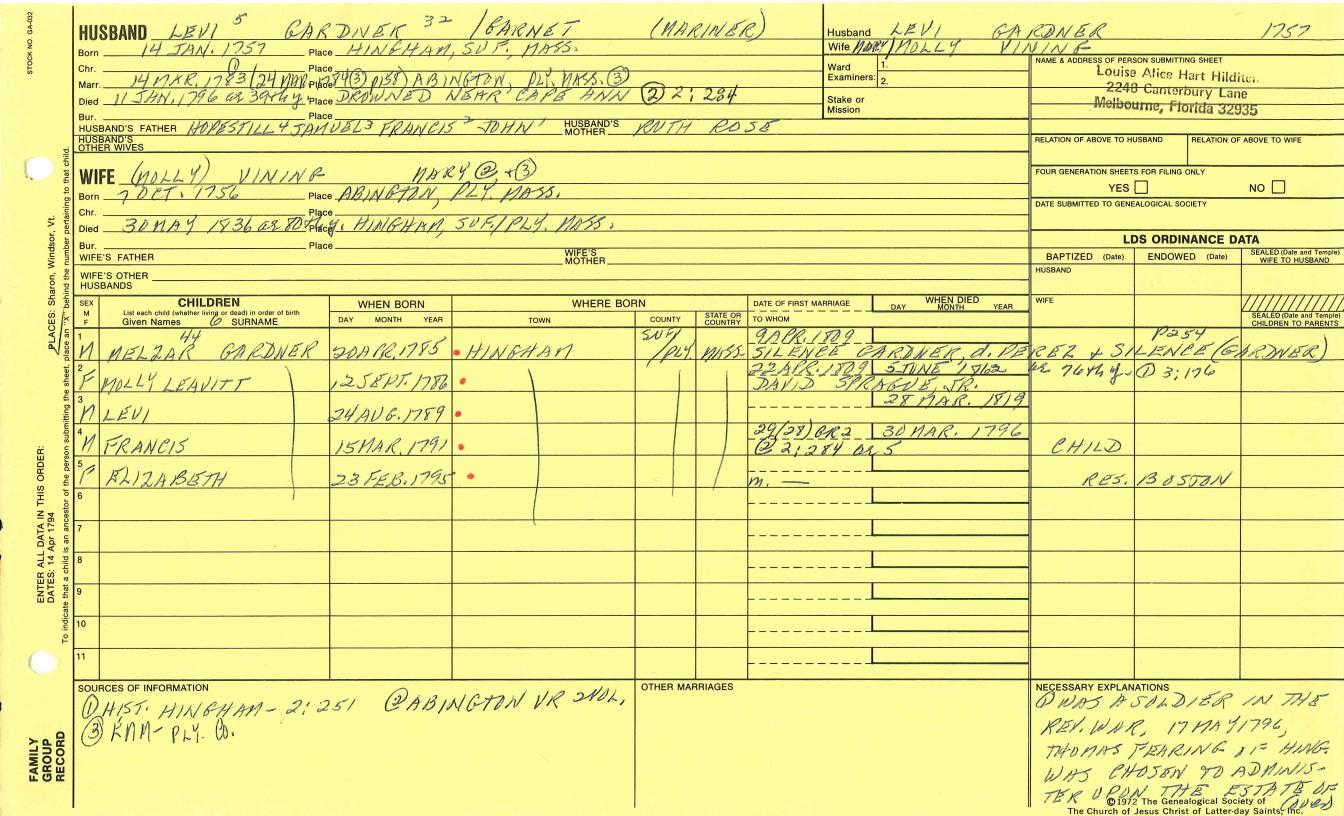 STOCK NO. GA-032
HUSBAND LEVI 5 GARDNER 32 / GARNET (MARINER)
Born 14 JAN. 1757 Place HINGHAM, SUF. MASS.
Chr. Place
Marr. 14 MAR. 1783 ① (24 MAR. 1784 ③ p158) Place ABINGTON, PLY. MASS. ③
Died 11 JAN, 1796 ae 39th y. Place DROWNED NEAR CAPE ANN ② 2; 284
Bur. Place
HUSBAND'S FATHER HOPESTILL 4 SAMUEL 3 FRANCIS 2 JOHN 1 HUSBAND'S MOTHER RUTH ROSE
HUSBAND'S OTHER WIVES
Husband LEVI GARDNER 1757
Wife MARY/MOLLY VINING
Ward Examiners: 1. 2.
Stake or Mission
NAME & ADDRESS OF PERSON SUBMITTING SHEET
Louise Alice Hart Hilditch
2248 Canterbury Lane
Melbourne, Florida 32935
RELATION OF ABOVE TO HUSBAND RELATION OF ABOVE TO WIFE
FOUR GENERATION SHEETS FOR FILING ONLY
YES NO
DATE SUBMITTED TO GENEALOGICAL SOCIETY
WIFE (MOLLY) VINING MARY ② + ③
Born 7 OCT. 1756 Place ABINGTON, PLY. MASS.
Chr. Place
Died 30 MAY 1836 ae 80th y. Place HINGHAM, SUF./PLY. MASS.
Bur. Place
WIFE'S FATHER WIFE'S MOTHER
WIFE'S OTHER HUSBANDS
LDS ORDINANCE DATA
BAPTIZED (Date) ENDOWED (Date) SEALED (Date and Temple) WIFE TO HUSBAND
HUSBAND
WIFE
SEALED (Date and Temple) CHILDREN TO PARENTS
SEX M F CHILDREN List each child (whether living or dead) in order of birth Given Names 6 SURNAME WHEN BORN DAY MONTH YEAR WHERE BORN TOWN COUNTY STATE OR COUNTRY DATE OF FIRST MARRIAGE TO WHOM WHEN DIED DAY MONTH YEAR
44 SUF/ 9 APR. 1809 P254
1 M MELZAR GARDNER 20 APR, 1785 HINGHAM /PLY MASS SILENCE GARDNER, d. PEREZ & SILENCE (GARDNER)
22 APR. 1809 5 JUNE 1862 ae 76th y. ① 3; 176
2 F MOLLY LEAVITT 12 SEPT. 1786 DAVID SPRAGUE, JR.
28 MAR. 1819
3 M LEVI 24 AUG. 1789
29(28) GR2 30 MAR. 1796
4 M FRANCIS 15 MAR. 1791 ② 2; 284 ae 5 CHILD
5 F ELIZABETH 23 FEB. 1795 m. — RES. BOSTON
6
7
8
9
10
11
SOURCES OF INFORMATION
① HIST. HINGHAM - 2: 251 ② ABINGTON VR 2VOL.
③ KMM - PLY. CO.
OTHER MARRIAGES
NECESSARY EXPLANATIONS
① WAS A SOLDIER IN THE
REV. WAR, 17 MAY 1796,
THOMAS FEARING OF HING.
WAS CHOSEN TO ADMINIS-
TER UPON THE ESTATE OF
(OVER)
©1972 The Genealogical Society of
The Church of Jesus Christ of Latter-day Saints, Inc.
PLACES: Sharon, Windsor, Vt.
ENTER ALL DATA IN THIS ORDER:
DATES: 14 Apr 1794
To indicate that a child is an ancestor of the person submitting the sheet, place an "X" behind the number pertaining to that child.
FAMILY
GROUP
RECORD